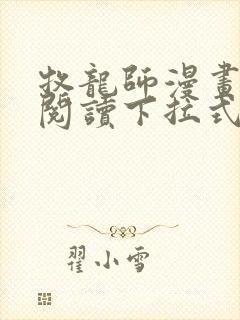 牧龍師漫畫
閱讀下拉式
翟小雪